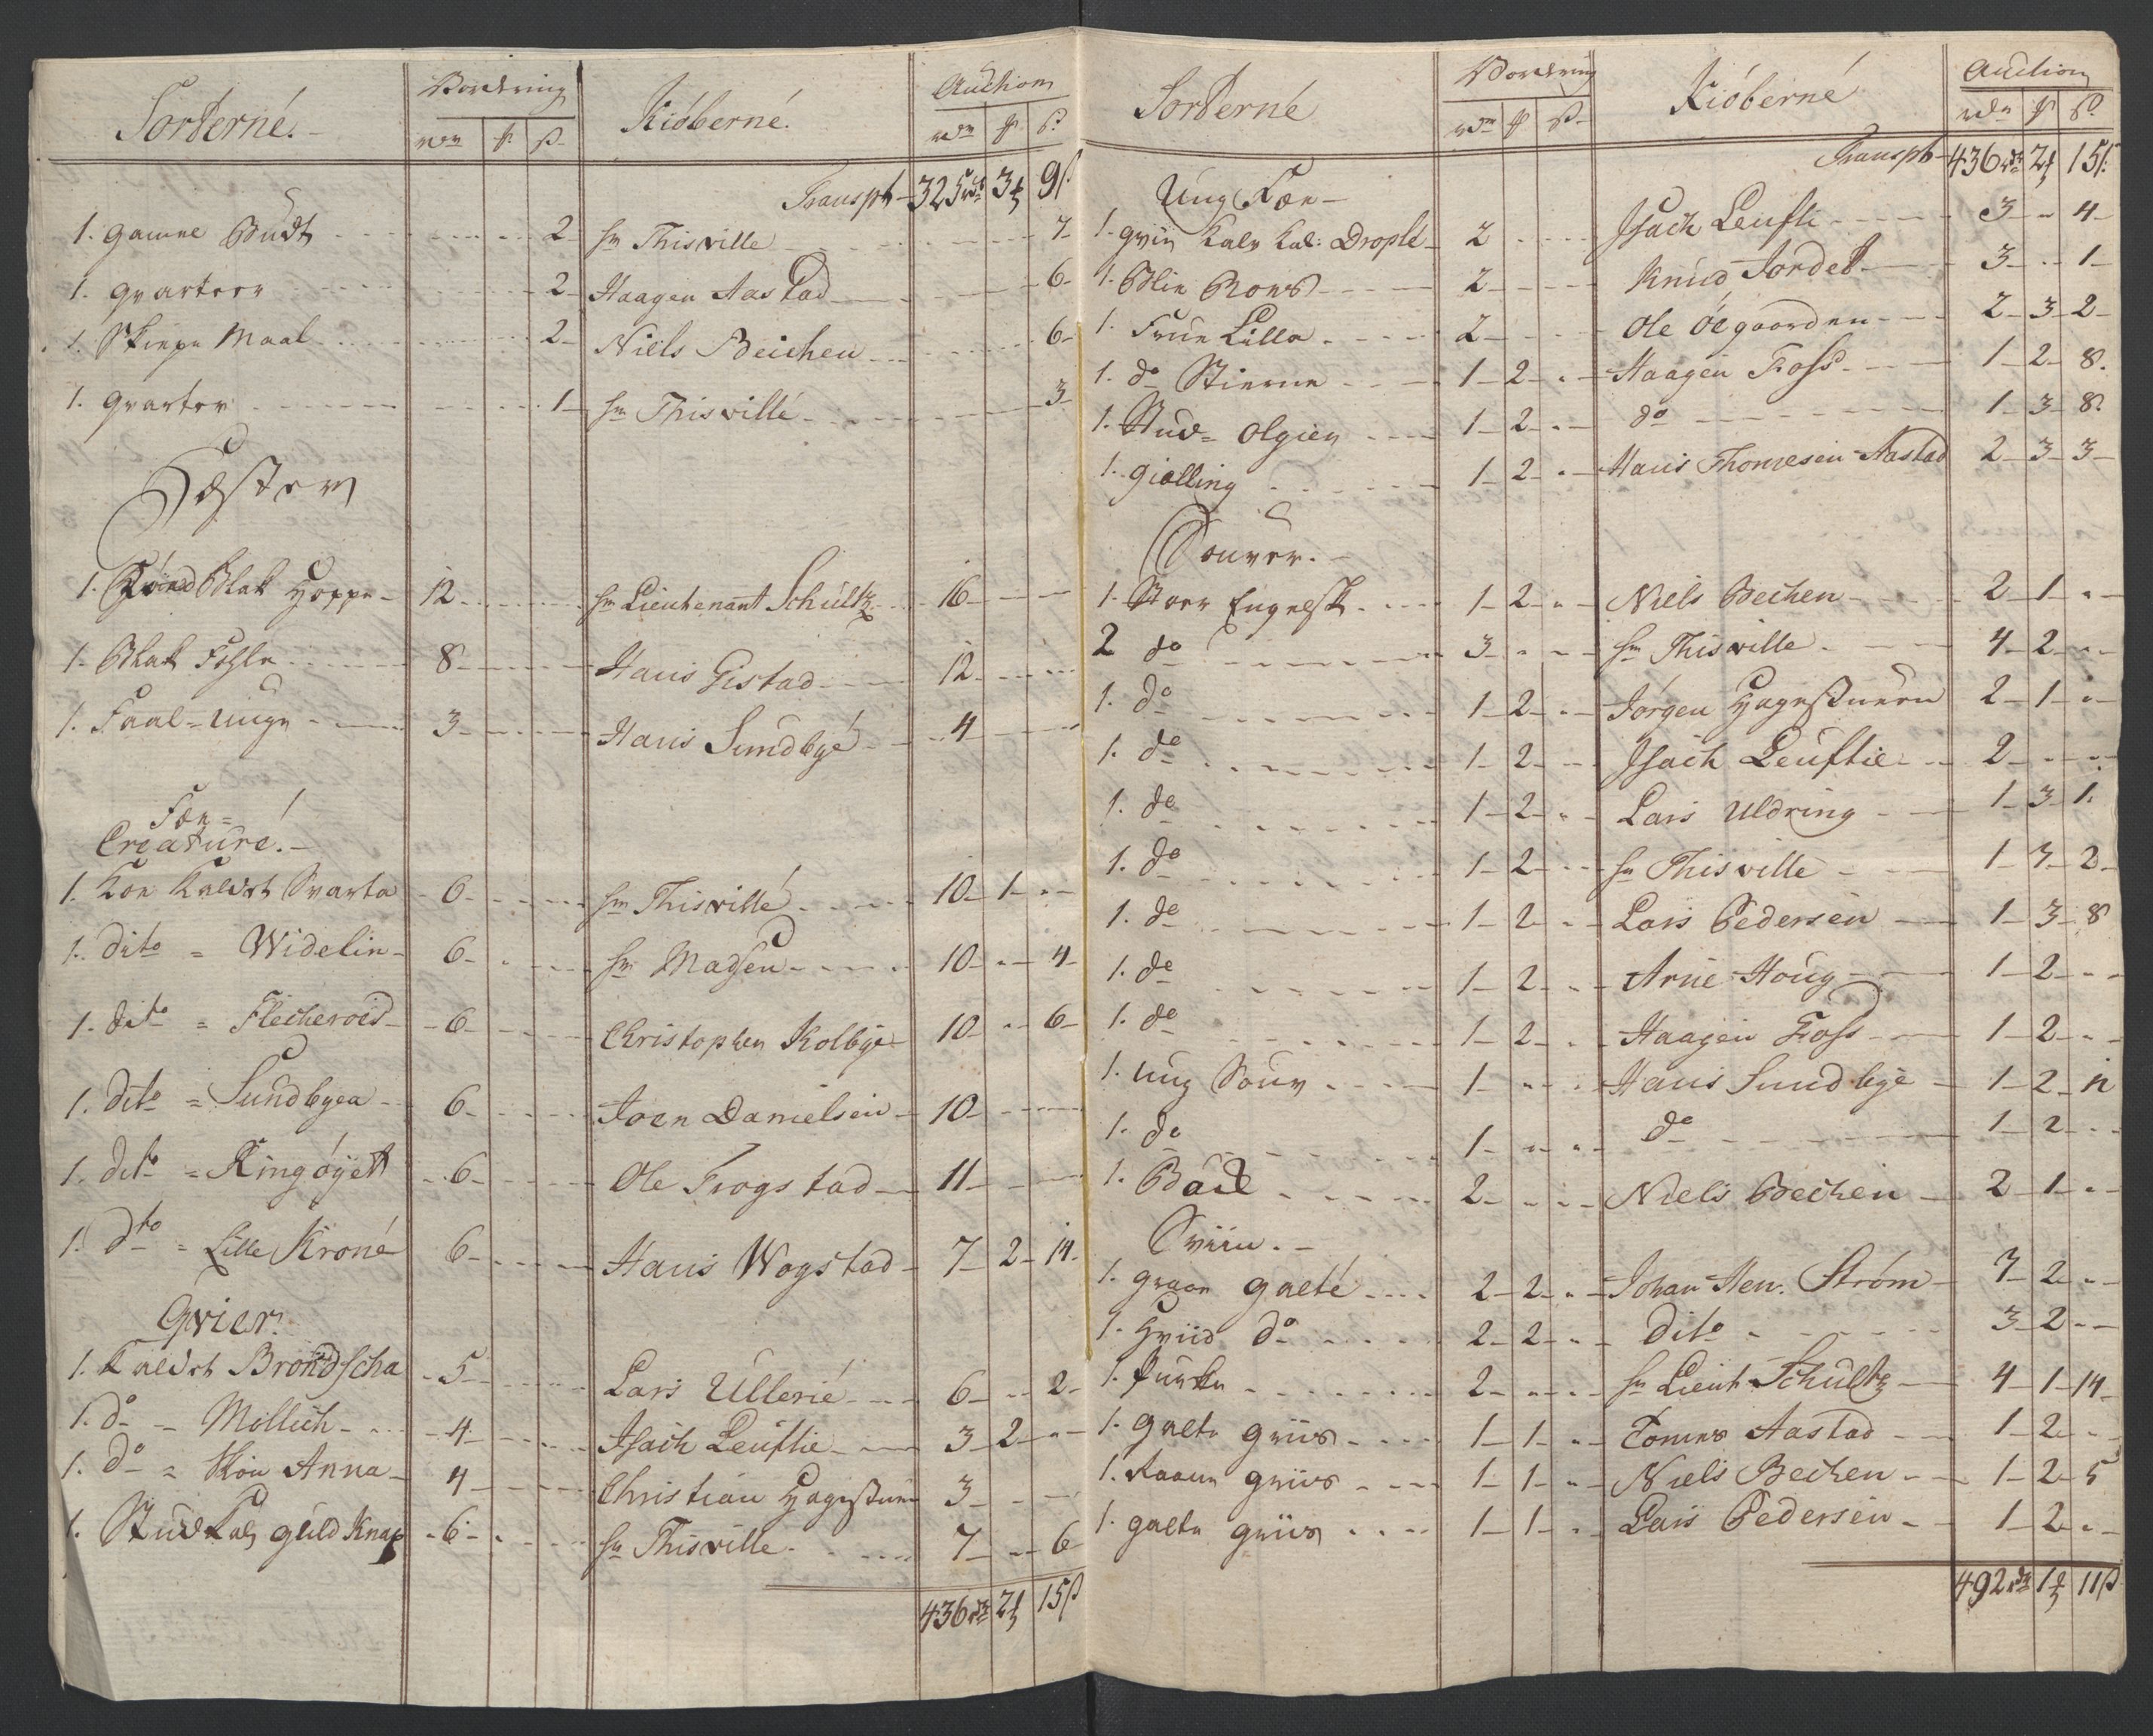 Sorterne. Vordring Kiöberne. Auction
rdr ß rdr ß
Transpt 325 rdr 3 9ß
1. gamel Butt 2 hr Thisville 7
1. qvarteer 2 Haagen Aastad 6
1. Skiepe Maal 2 Niels Beichen 6
1. qvarter 1 hr Thisville 3
Hæster
1. Blak Hoppe 12 hr Lieutenant Schultz 16
1. Blak Fohle 8 Hans Gistad 12
1. Faal-unge 3 Hans Sundbye 4
Fæe-
Creature.
1. Koe Kaldet Svarta 6 hr Thisville 10 1
1. dito = Widelin 6 hr Madsen 10 4
1. dito = Flecheroed 6 Christopher Kolbye 10 6
1. dito = Sundbyea 6 Joen Danielsen 10
1. dito = Ringöyet 6 Ole Frogstad 11
1. dto = Lille Krone 6 Hans Wogstad 7 2 14
Qvier.
1. Kaldet Brondscha 5 Lars Ullerie 6 2
1. do = Mollich 4 Isach Leuftie 3 2
1. do = Skiön Anna 4 Christian Hagestuen 3
1. Stud Kal guld Knap 6 hr Thisville 7 6
436 rdr 2 15ß
Sorterne Vordring Kiöberne Auction
rdr ß rdr ß
Transpt 436 rdr 2 15ß
Ung Fæe
1. qviie Kalv Kal: Drople 2 Isach Leufte 3 4
1. Blie Roes 2 Knud Jordet 3 1
1. Frue Lilla 2 Ole Öegaarden 2 3 2
1. do Stierne 1 2 Haagen Foss 1 2 8
1. Stud= Olgien 1 2 do 1 3 8
1. giælling 1 2 Hans Thomesen Aastad 2 3 3
Souver.
1. Stor Engelsk 1 2 Niels Bechen 2 1
2 do 3 hr Thisville 4 2
1. do 1 2 Jörgen Hagestuen 2 1
1. do 1 2 Isach Leuftie 2
1. do 1 2 Lars Uldring 1 3 1
1. do 1 2 hr Thisville 1 3 2
1. do 1 2 Lars Pedersen 1 3 8
1. do 1 2 Arne Houg 1 2
1. do 1 2 Haagen Foss 1 2
1. ung Souv 1 Hans Sundbye 1 2 12
1. do 1 do 1 2
1. Bæck 2 Niels Bechen 2 1
Sviin.
1. graae galte 2 2 Johan Hen. Ström 3 2
1. Hviid do 2 2 dito 3 2
1. Purke 2 hr Lieut Schultz 4 1 14
1. galte griis 1 1 Tomes Aastad 1 2
1. Raaun griis 1 1 Niels Bechen 1 2 5
1. galte griis 1 1 Lars Pedersen 1 2
492 rdr 1 11ß